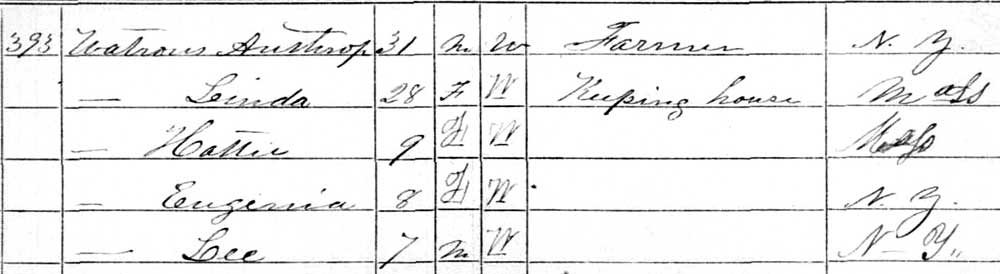 393 Watrous Austhrop 31 M W Farmer N. Y.
— Linda 28 F W Keeping house Mass
— Hattie 9 F W Mass
— Eugenia 8 F W N. Y.
— Lee 7 M W N - Y.,